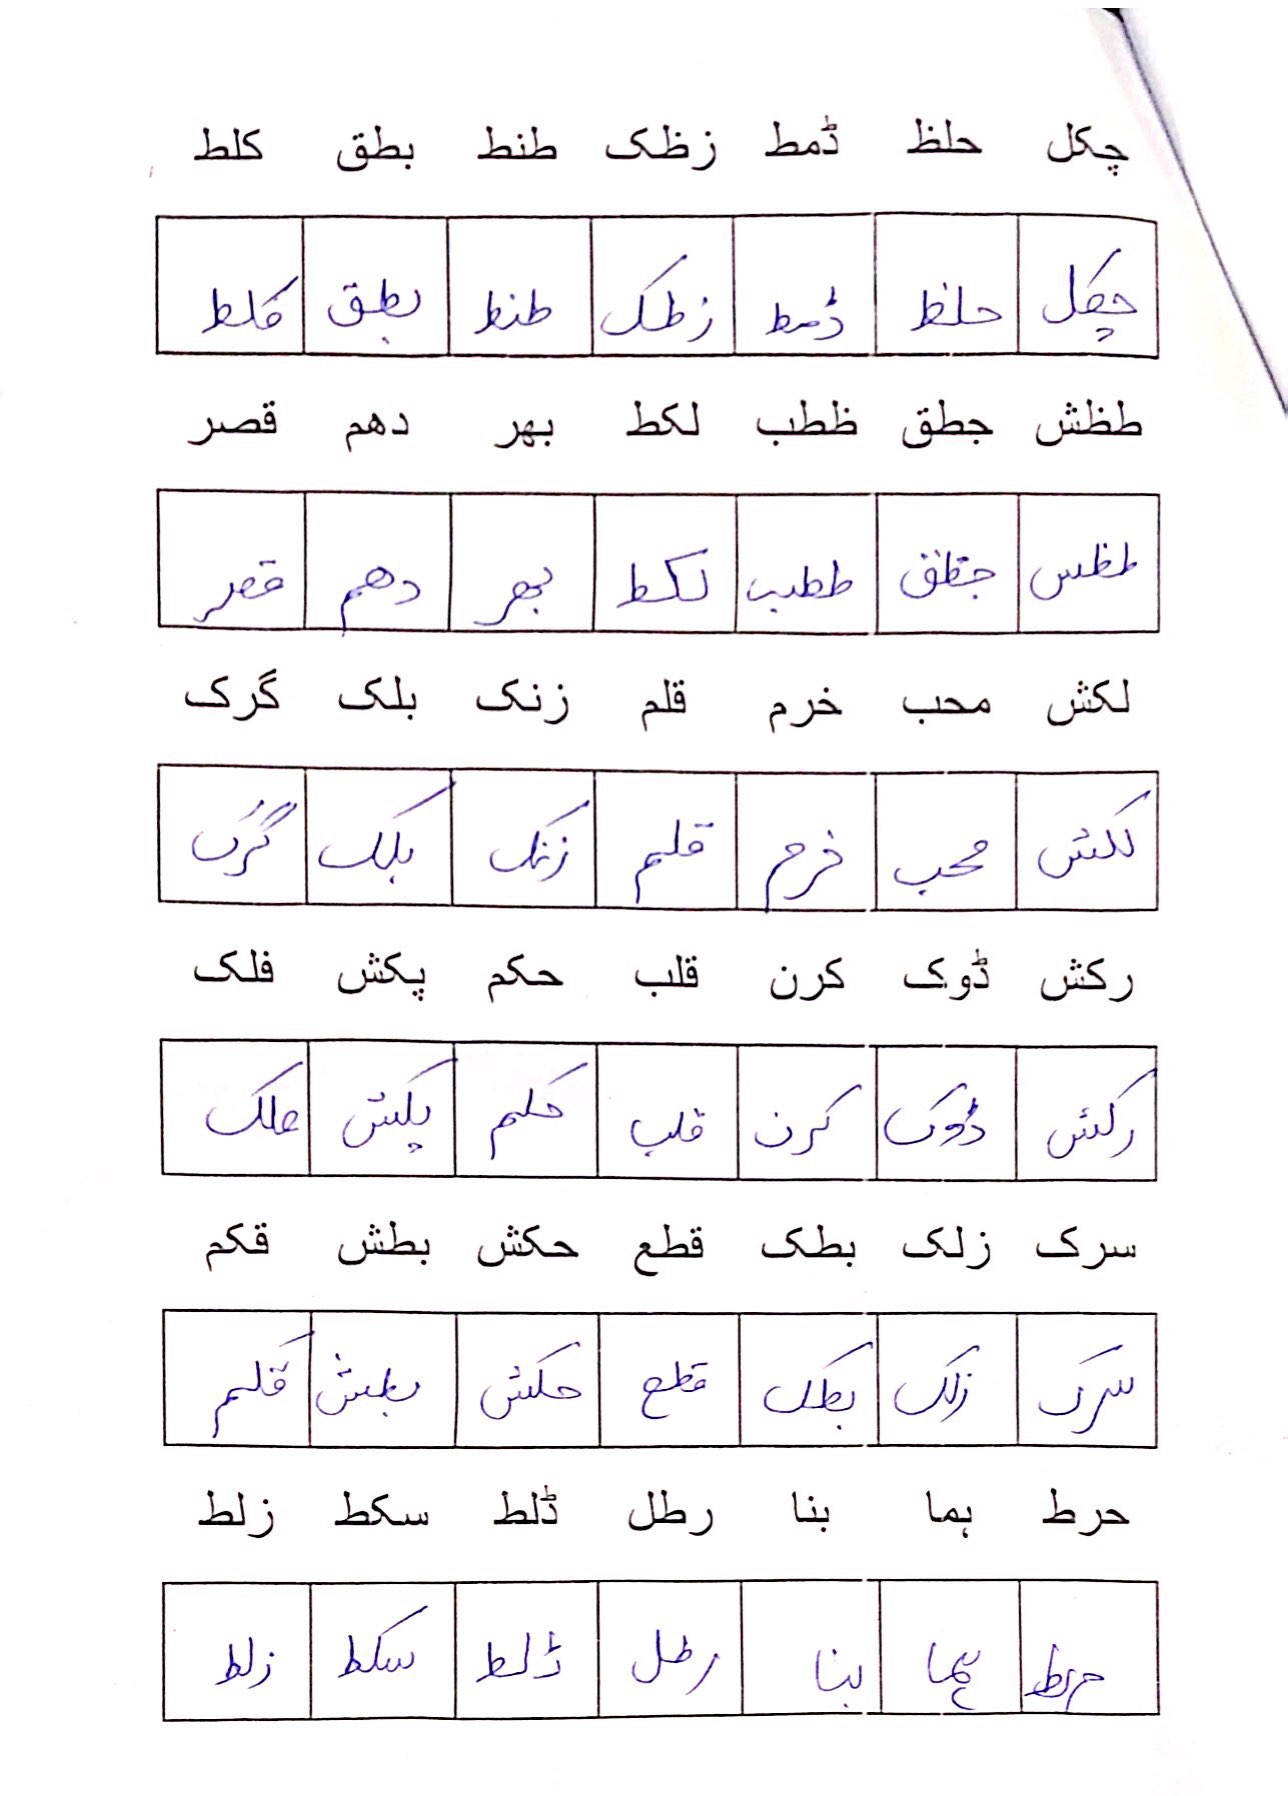 چکل حلظ ڈمط زظک طنط بطق کلط
چکل حلظ ڈمط زظک طنط بطق کلط
طظش جطق ظطب لکط بھر دھم قصر
طظس جطق ططب لکط بھر دھم قصر
لکش محب خرم قلم زنک بلک گرک
لکش محب خرم قلم زنک بلک گرک
رکش ڈوک کرن قلب حکم پکش فلک
رکش ڈوک کرن قلب حکم پکش فلک
سرک زلک بطک قطع حکش بطش قکم
سرک زلک بطک قطع حکش بطش قکم
حرط ہما بنا رطل ڈلط سکط زلط
حرط ہما بنا رطل ڈلط سکط زلط